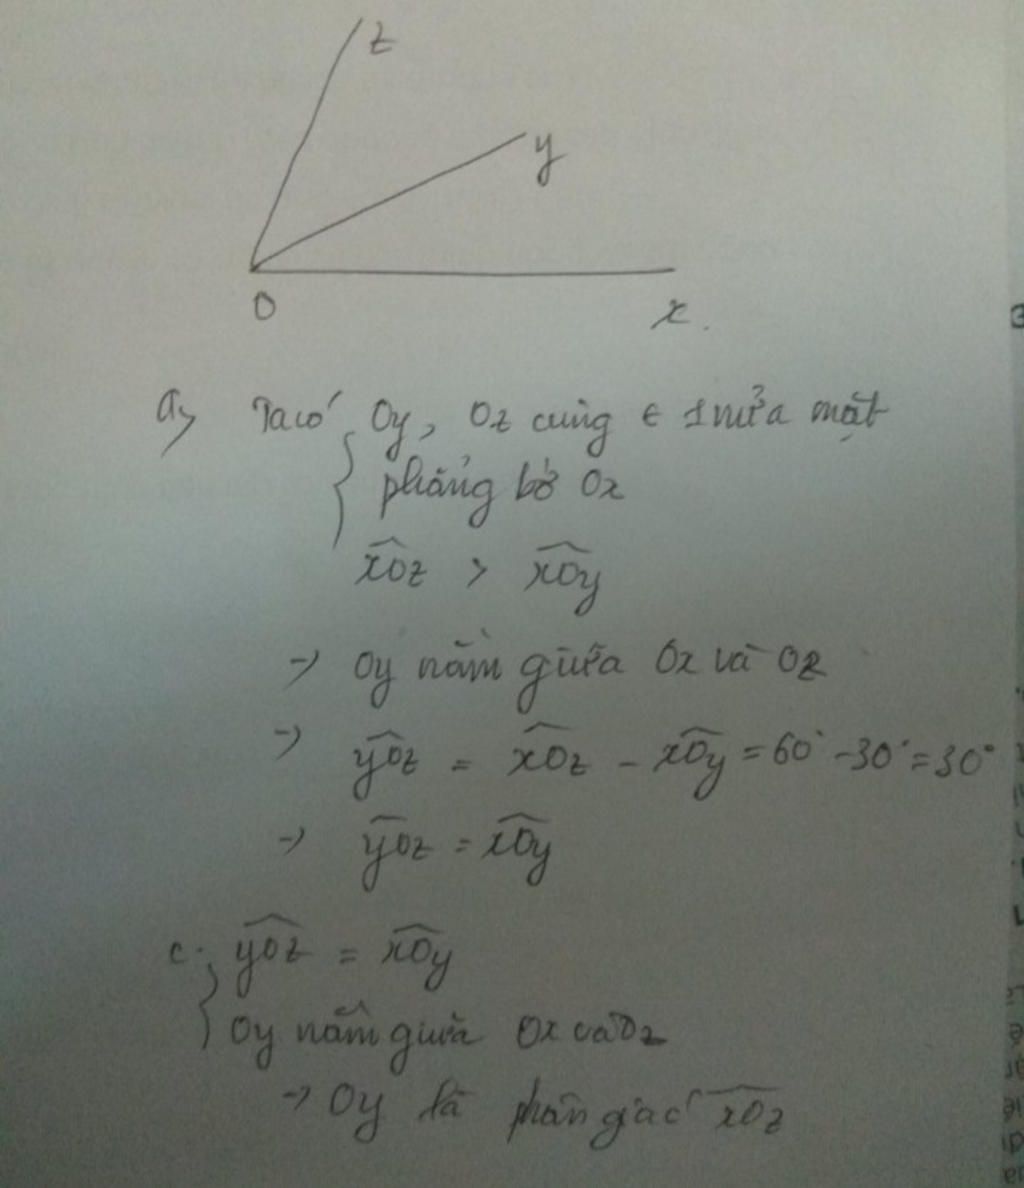 z
y
O
x
a, Ta có Oy, Oz cùng ∈ 1 nửa mặt
phẳng bờ Ox
xOz > xOy
→ Oy nằm giữa Ox và Oz
→ yOz = xOz - xOy = 60° - 30° = 30°
→ yOz = xOy
c. yOz = xOy
Oy nằm giữa Ox và Oz
→ Oy là phân giác xOz